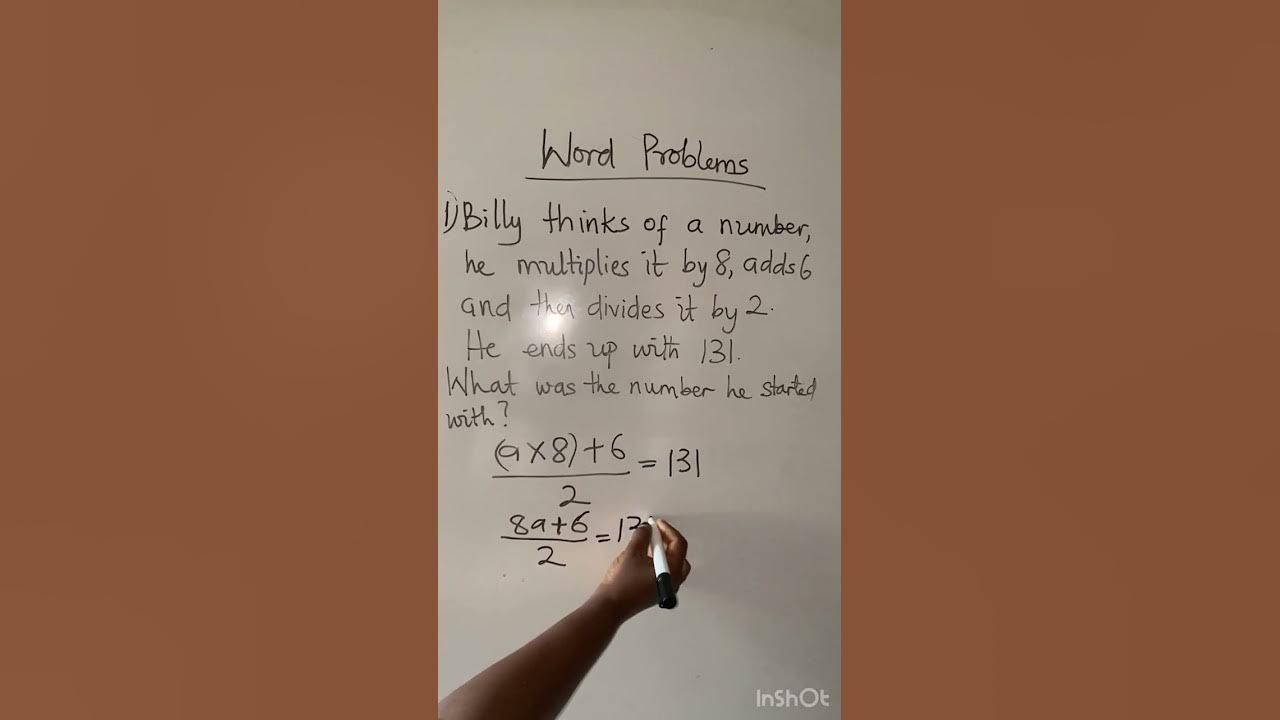 Word Problems
1) Billy thinks of a number,
he multiplies it by 8, adds 6
and then divides it by 2.
He ends up with 131.
What was the number he started
with?
(a × 8) + 6
= 131
2
8a + 6
= 13
2
InShOt